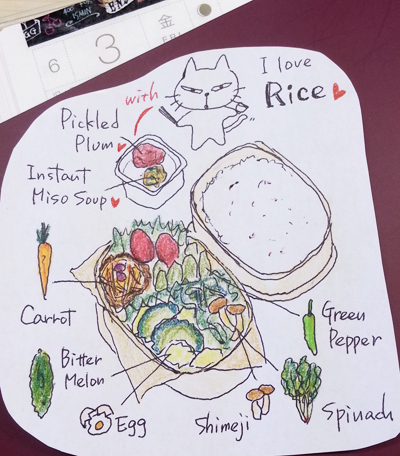 6
3
金
FRI
I love
Rice
with
Pickled
Plum
Instant
Miso Soup
Carrot
Green
Pepper
Bitter
Melon
Egg
Shimeji
Spinach